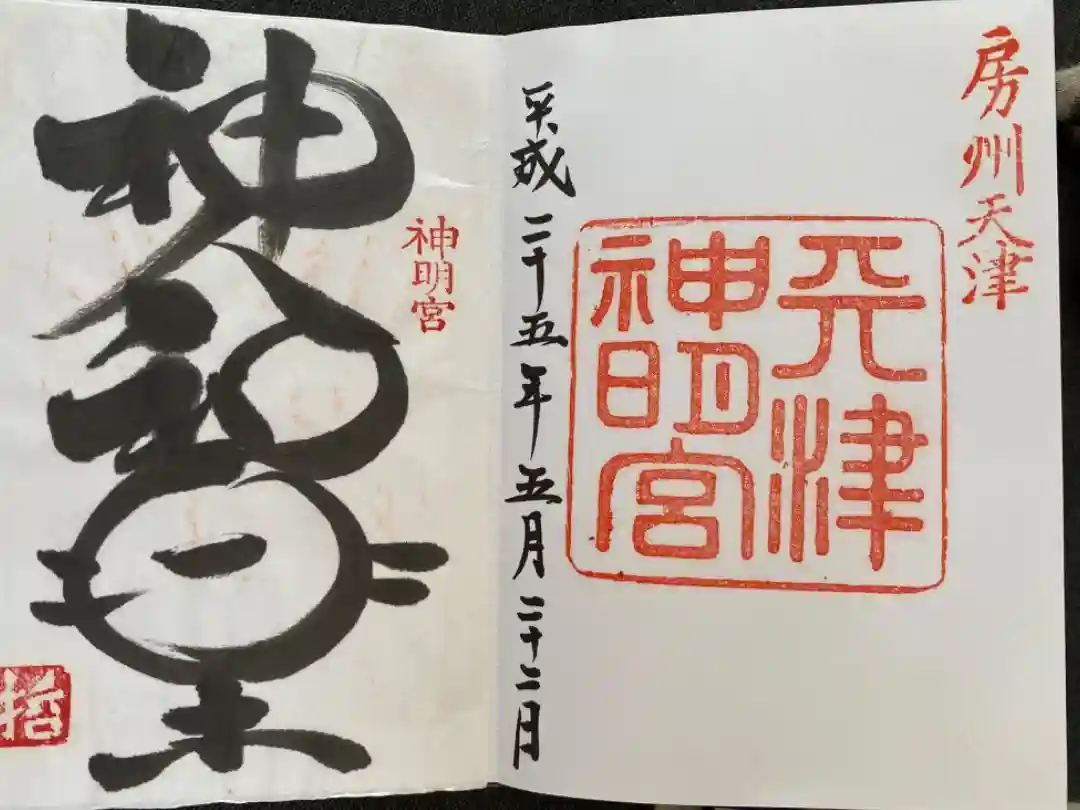 房州天津
天津
神明宮
平成二十五年五月二十二日
神明宮
哲